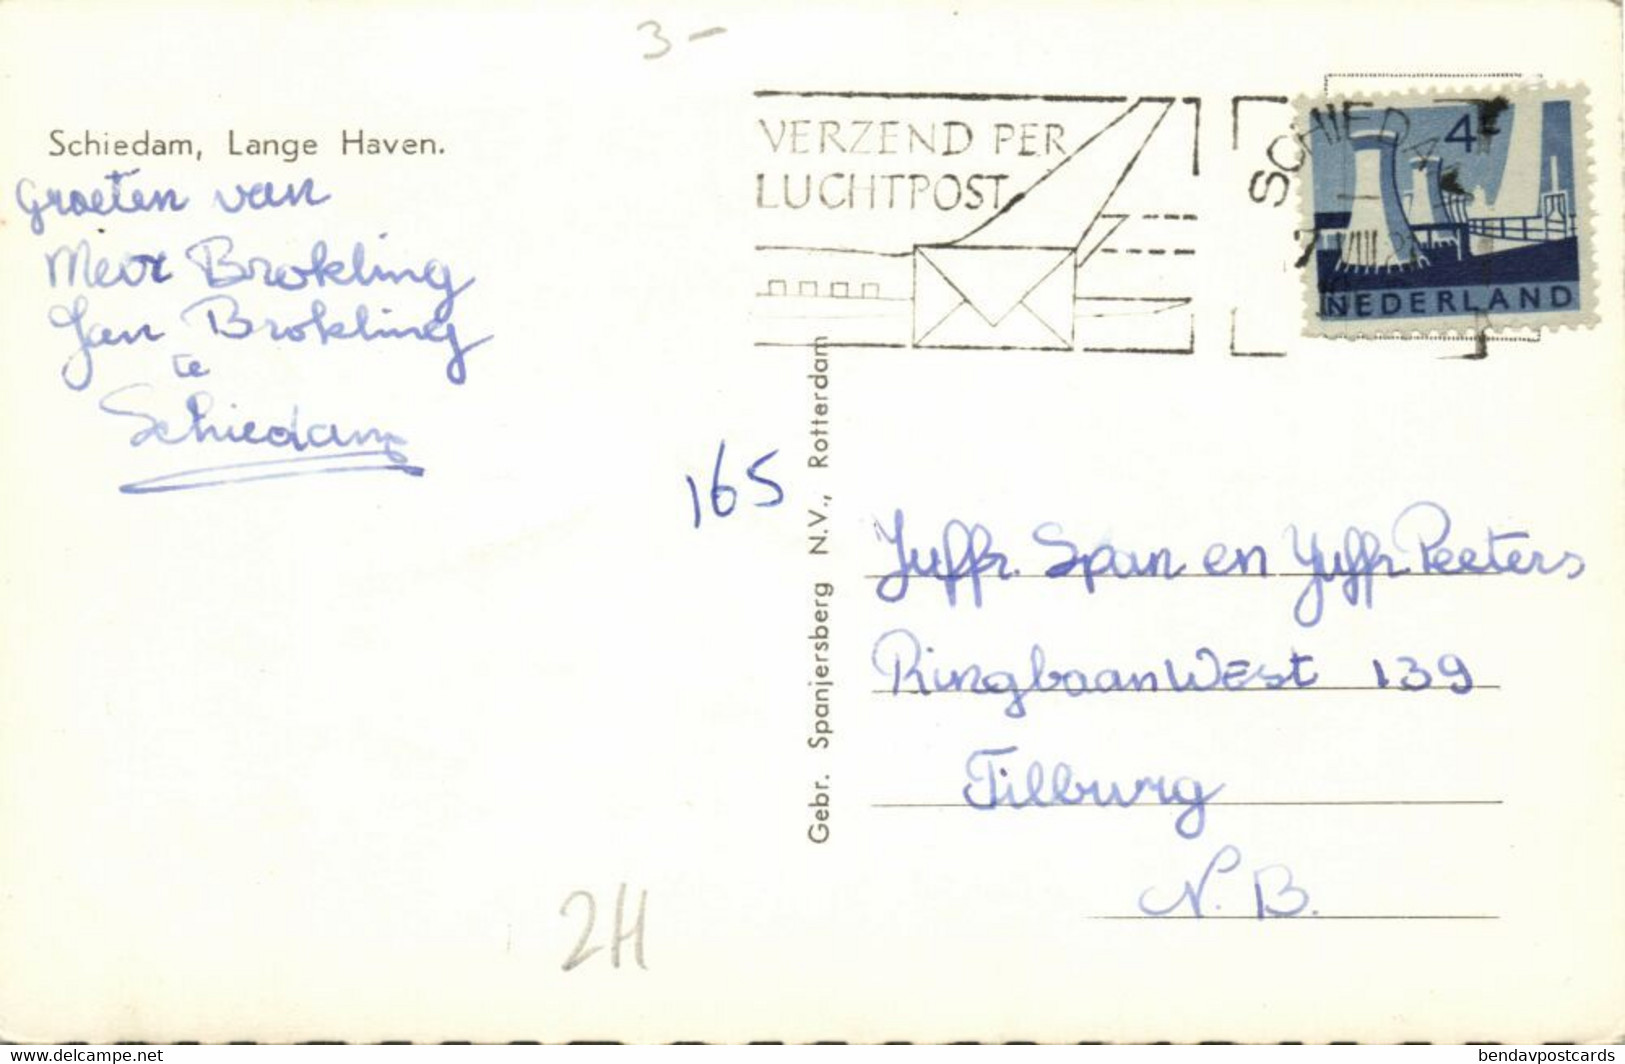 3-
Schiedam, Lange Haven.
Groeten van
Mevr Brokling
Jan Brokling
te
Schiedam
VERZEND PER
LUCHTPOST
SCHIEDAM
4
NEDERLAND
165
Gebr. Spanjersberg N.V., Rotterdam
Juffr. Span en Juffr Peeters
RingbaanWest 139
Tilburg
N.B.
2H
www.delcampe.net
bendavpostcards